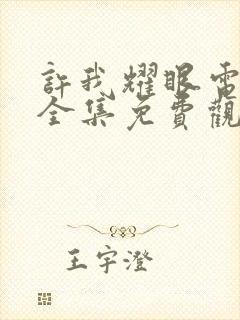 許我耀眼電
全集免費觀
王宇澄